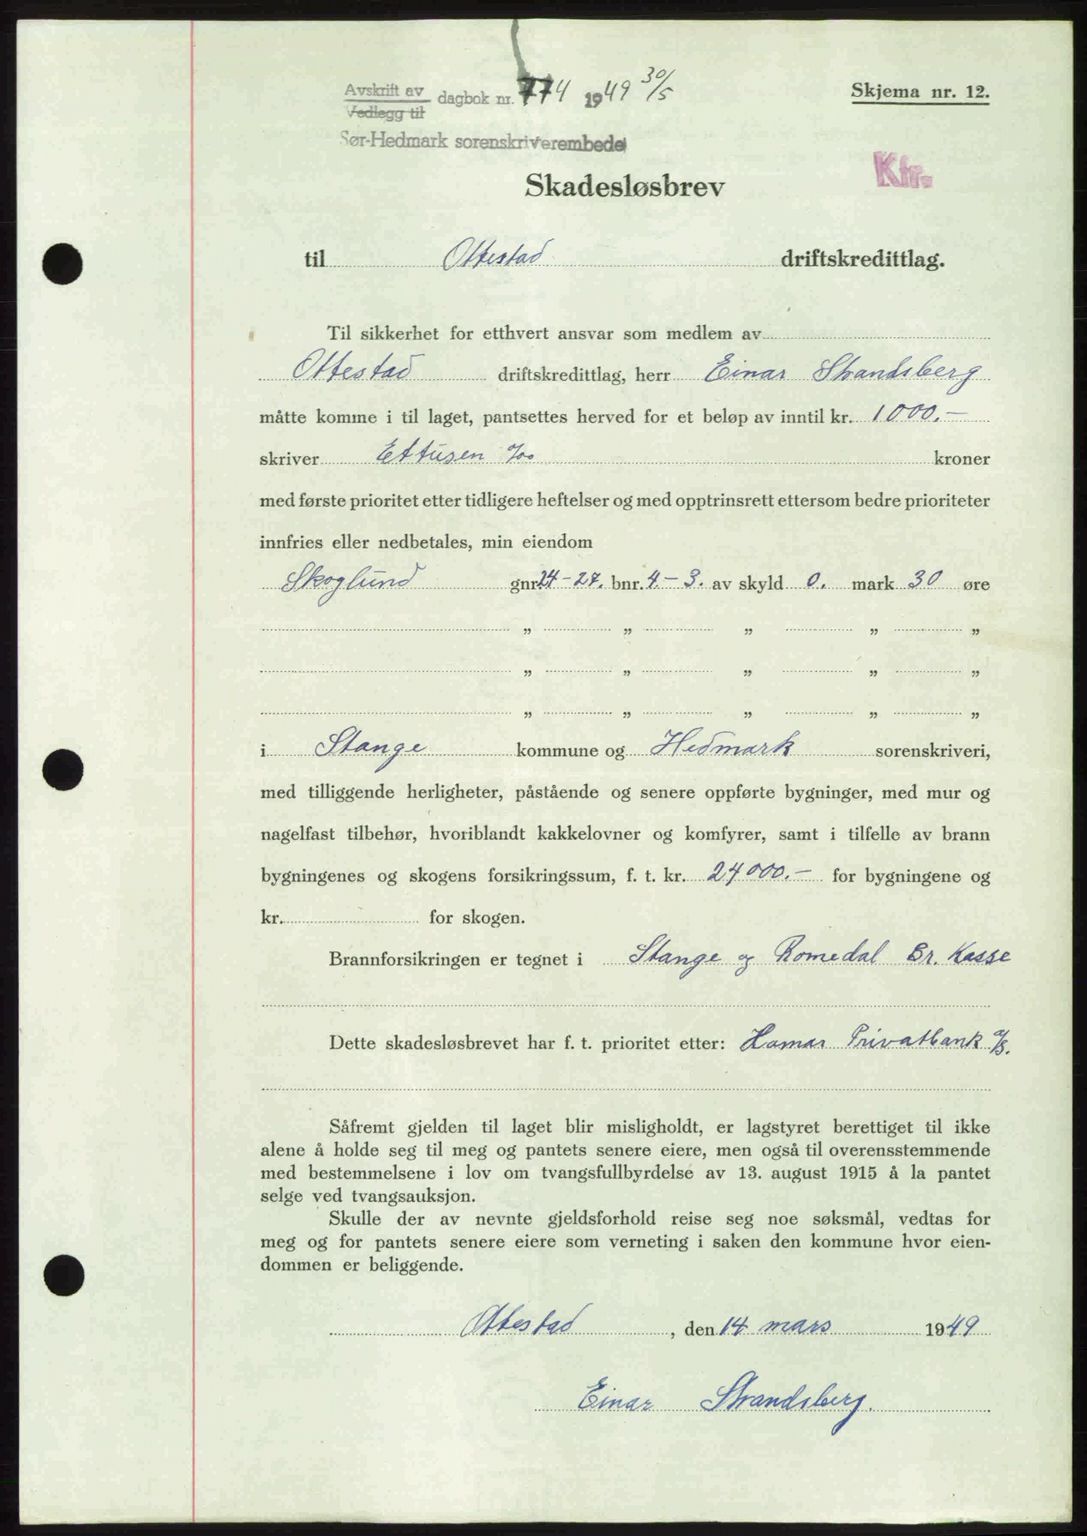 Avskrift av dagbok nr. 774 1949 30/5
Vedlegg til
Skjema nr. 12.
Sør-Hedmark sorenskriverembede
Kfr.
Skadesløsbrev
til Ottestad driftskredittlag.
Til sikkerhet for etthvert ansvar som medlem av
Ottestad driftskredittlag, herr Einar Strandsberg
måtte komme i til laget, pantsettes herved for et beløp av inntil kr. 1000.-
skriver Ettusen %oo kroner
med første prioritet etter tidligere heftelser og med opptrinsrett ettersom bedre prioriteter
innfries eller nedbetales, min eiendom
Skoglund gnr. 24-27. bnr. 4-3. av skyld 0. mark 30 øre
„ „ „ „ „
„ „ „ „ „
„ „ „ „ „
i Stange kommune og Hedmark sorenskriveri,
med tilliggende herligheter, påstående og senere oppførte bygninger, med mur og
nagelfast tilbehør, hvoriblandt kakkelovner og komfyrer, samt i tilfelle av brann
bygningenes og skogens forsikringssum, f. t. kr. 24000.- for bygningene og
kr. for skogen.
Brannforsikringen er tegnet i Stange og Romedal Br. Kasse
Dette skadesløsbrevet har f. t. prioritet etter: Hamar Privatbank a/s.
Såfremt gjelden til laget blir misligholdt, er lagstyret berettiget til ikke
alene å holde seg til meg og pantets senere eiere, men også til overensstemmende
med bestemmelsene i lov om tvangsfullbyrdelse av 13. august 1915 å la pantet
selge ved tvangsauksjon.
Skulle der av nevnte gjeldsforhold reise seg noe søksmål, vedtas for
meg og for pantets senere eiere som verneting i saken den kommune hvor eien-
dommen er beliggende.
Ottestad, den 14 mars 1949
Einar Strandsberg.